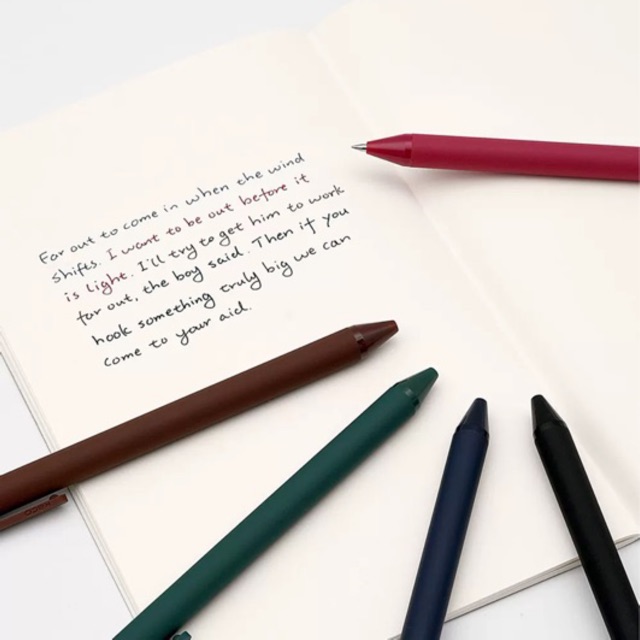 For out to come in when the wind
shifts. I want to be out before it
is light. I'll try to get him to work
far out, the boy said. Then if you
hook something truly big we can
come to your aid.